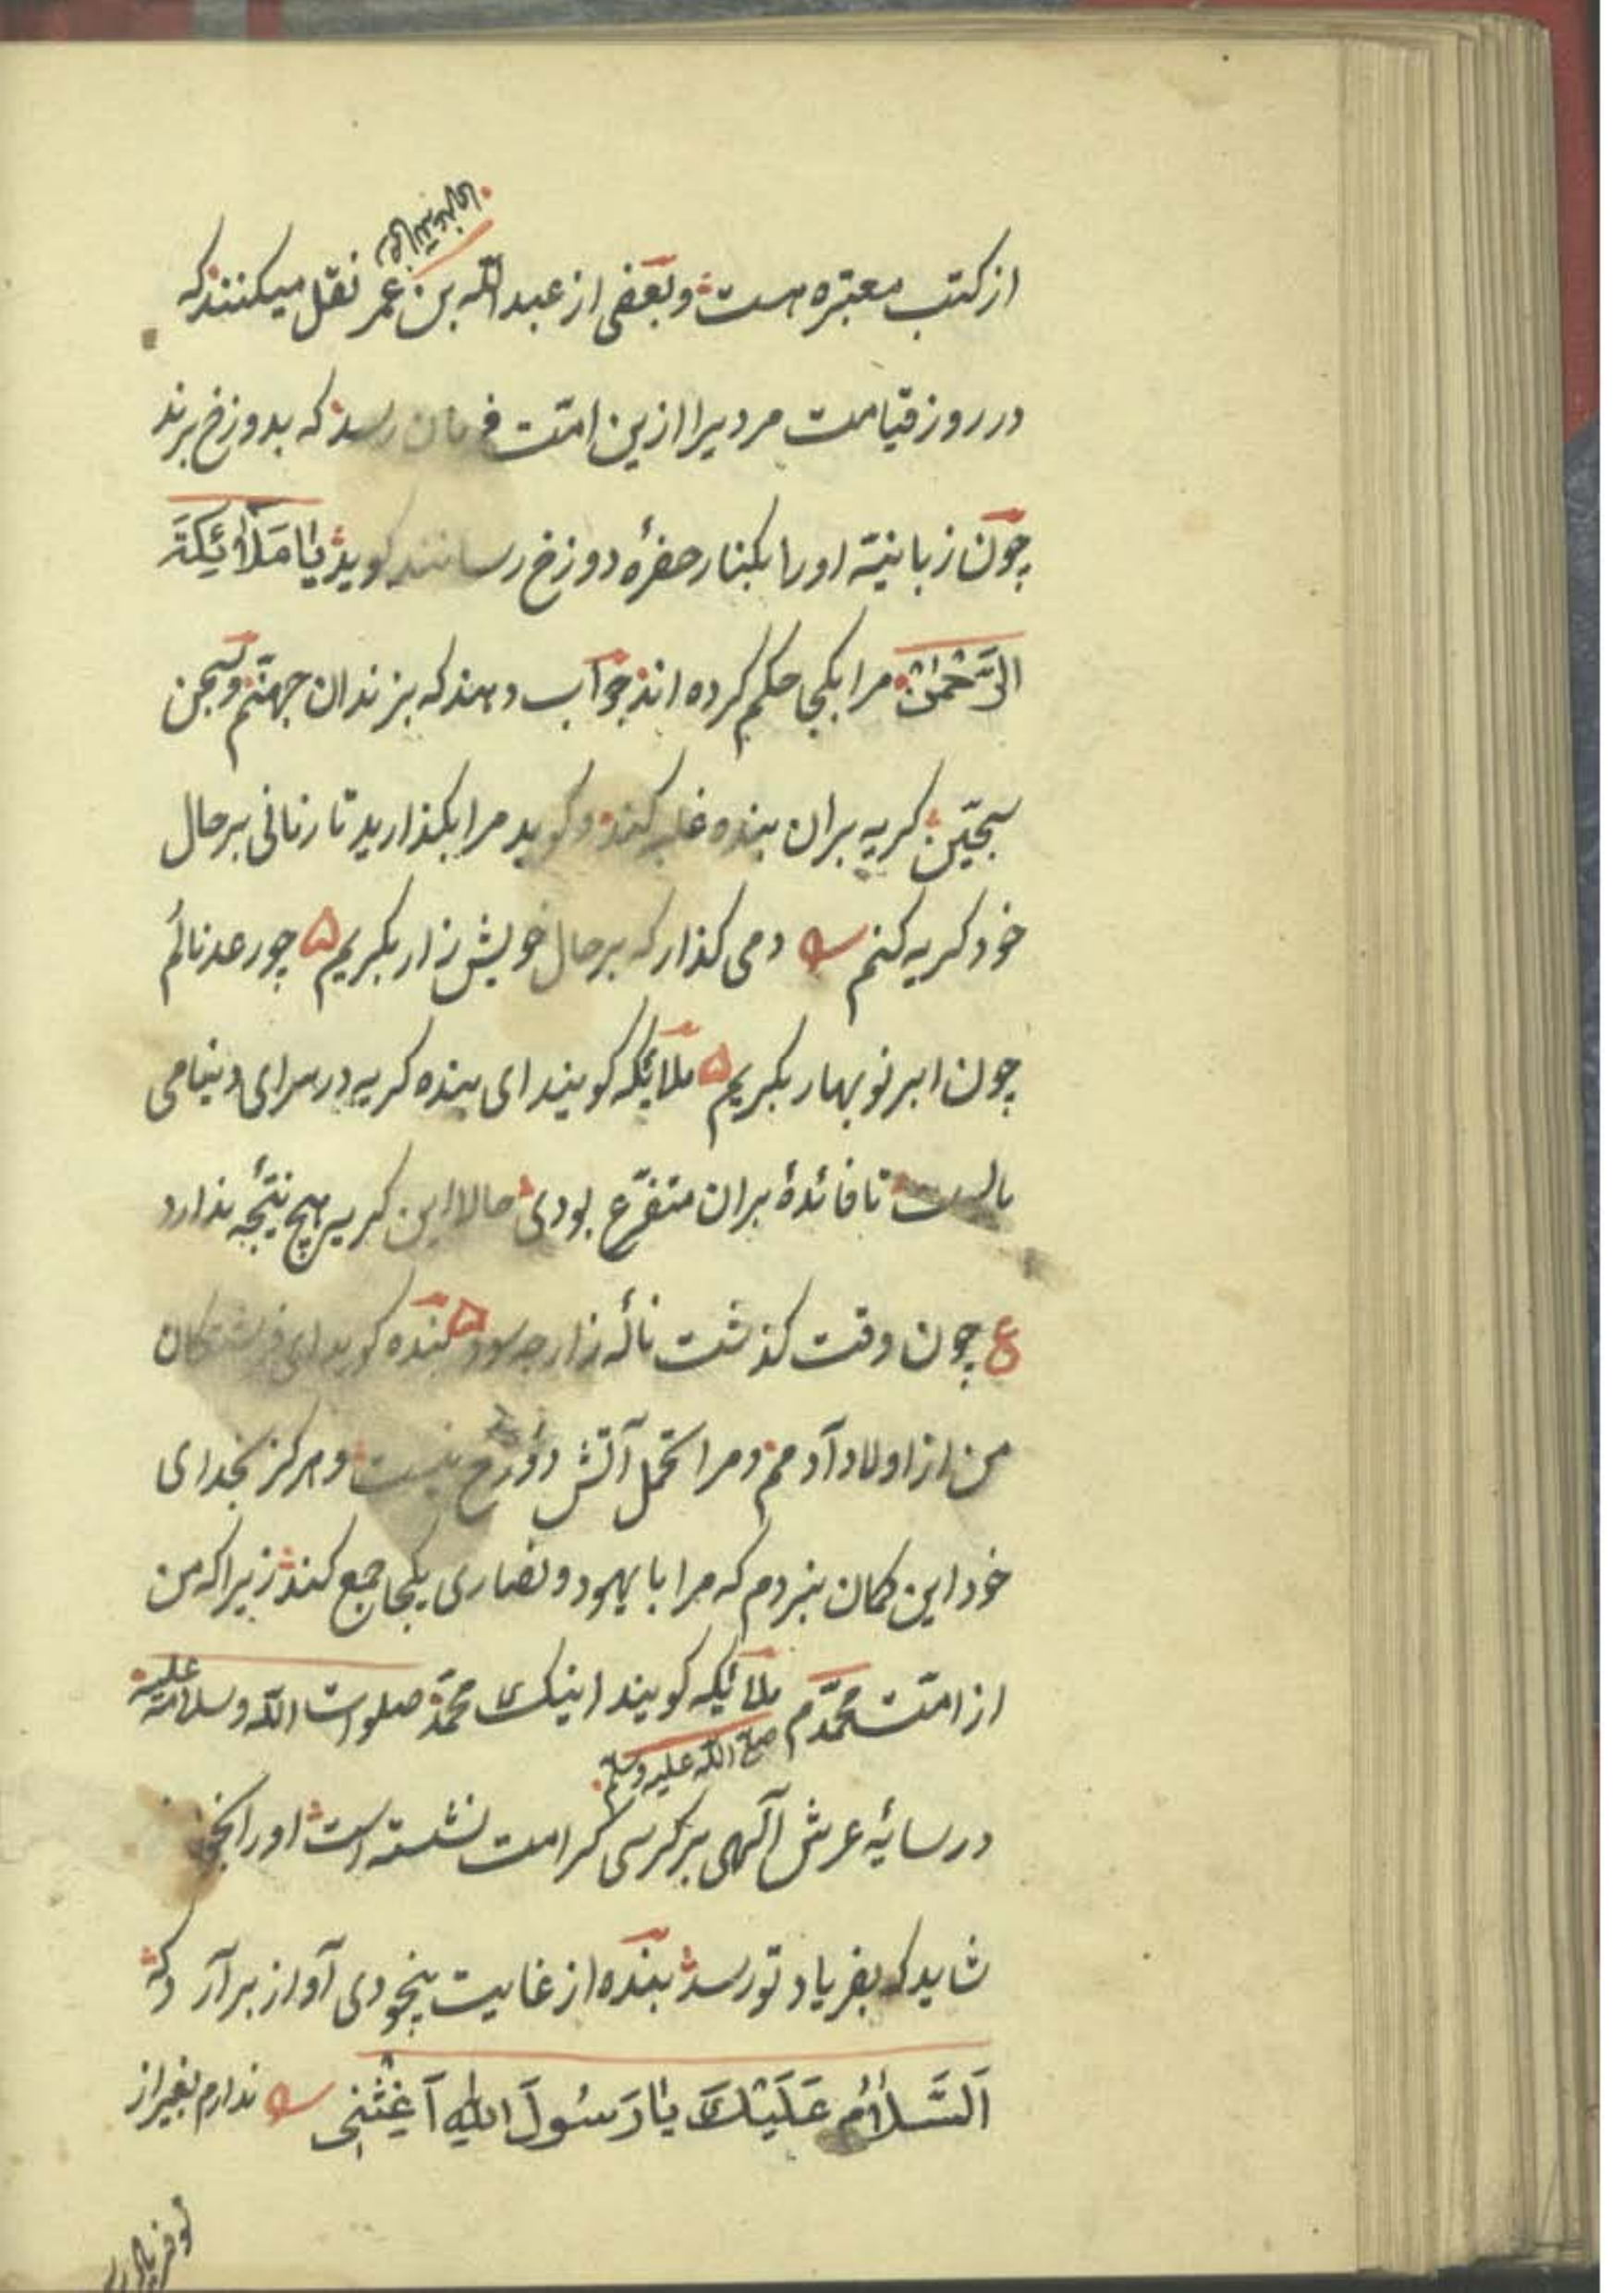 از کتب معتبره هست و بعضی از عبدالله بن عمر رضی الله عنهما نقل میکنند که
در روز قیامت مردیرا ازین امّت فرمان رسد که بدوزخ برند
چون زبانیّه اورا بکنار حفرهٔ دوزخ رسانند کوید یٰا مَلٰٓائِکَةَ
الرَّحْمٰنِ مرا بکجا حکم کرده اند جواب دهند که بزندان جهنّم و سجن
سجّین کریه بران بنده غلبه کند و کوید مرا بکذارید تا زمانی برحال
خود کریه کنم دمی کذار که برحال خویش زار بکریم ۵ چو رعد نالم
چون ابر نوبهار بکریم ۵ ملائکه کویند ای بنده کریه در سرای دنیا می
بالست تا فائدهٔ بران متفرّع بودی حالا این کریه هیچ نتیجه ندارد
ع چون وقت کذشت نالهٔ زار چه سود ۵ بنده کوید ای فرشتکان
من از اولاد آدمم و مرا تحمل آتش دوزخ نیست و هرکز بخدای
خود این کمان نبردم که مرا با یهود و نصاری یکجا جمع کند زیرا که من
از امّت محمّدم صلی الله علیه وسلّم ملائکه کویند اینک محمّد صلوات الله وسلامه علیه
در سایهٔ عرش آلهی بر کرسی کرامت نشسته است اورا بخوان
شاید که بفریاد تو رسد بنده از غایت بیخودی آواز برآرد که
اَلسَّلٰامُ عَلَیْكَ یٰا رَسُولَ اللهِ آغِثْنِی ندارم بغیر از
تو فریادرس